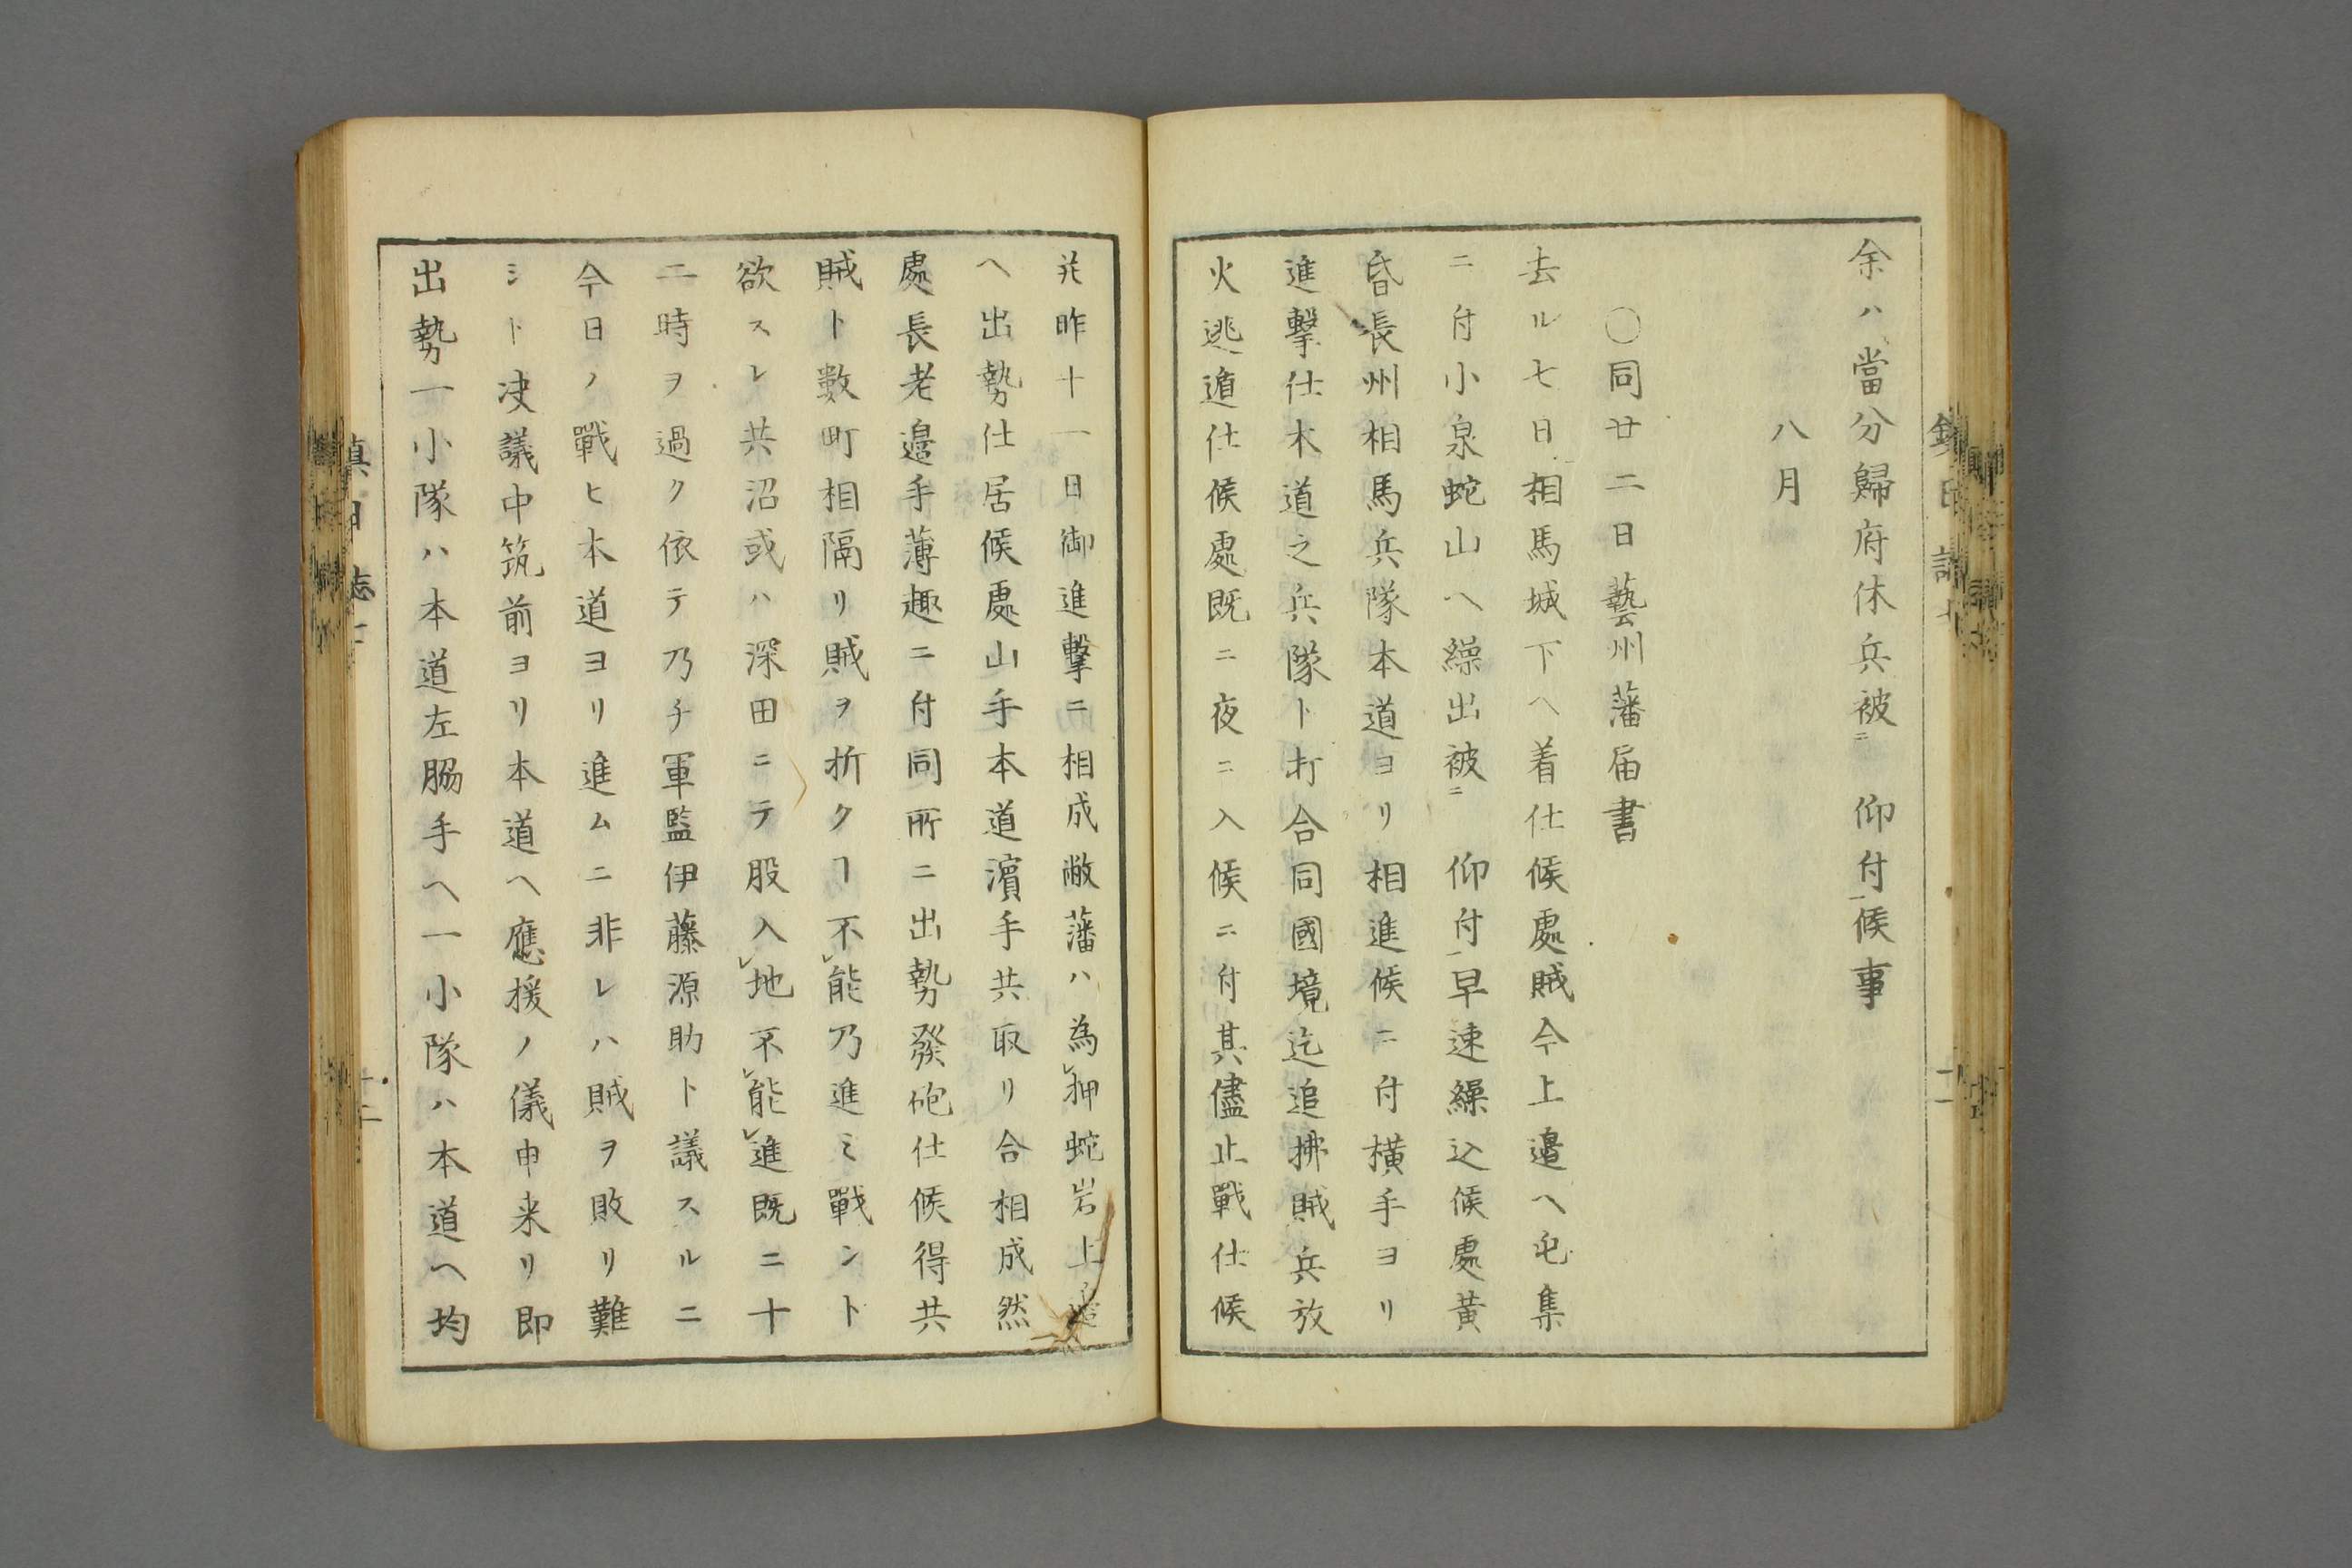 余ハ當分歸府休兵被ニ 仰付一候事
八月
○同廿二日藝州藩届書
去ル七日相馬城下ヘ着仕候處賊今上邉ヘ屯集
ニ付小泉蛇山ヘ繰出被ニ 仰付一早速繰込候處黄
昏長州相馬兵隊本道ヨリ相進候ニ付横手ヨリ
進撃仕木道之兵隊ト打合同國境迄追拂賊兵放
火逃遁仕候處既ニ夜ニ入候ニ付其儘止戰仕候
昨十一日御進撃ニ相成敝藩ハ為レ押蛇岩上
ヘ出勢仕居候處山手本道濵手共取リ合相成然
處長老邉手薄趣ニ付同所ニ出勢發砲仕候得共
賊ト数町相隔リ賊ヲ折クヿ不レ能乃進ミ戰ント
欲スレ共沼或ハ深田ニテ股入レ地不レ能レ進既ニ十
二時ヲ過ク依テ乃チ軍監伊藤源助ト議スルニ
今日ノ戰ヒ本道ヨリ進ムニ非レハ賊ヲ敗リ難
シト决議中筑前ヨリ本道ヘ應援ノ儀申来リ即
出勢一小隊ハ本道左脇手ヘ一小隊ハ本道ヘ均
十二